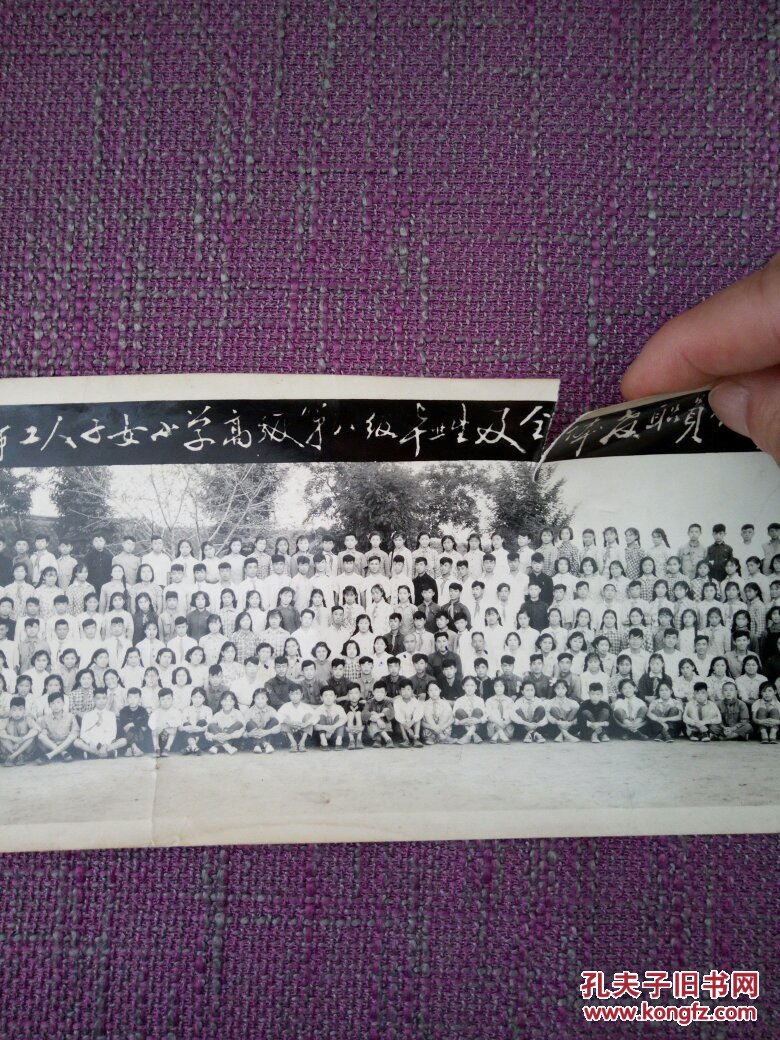 市工人子女小学高级第八级毕业生及全体教职员
孔夫子旧书网
www.kongfz.com